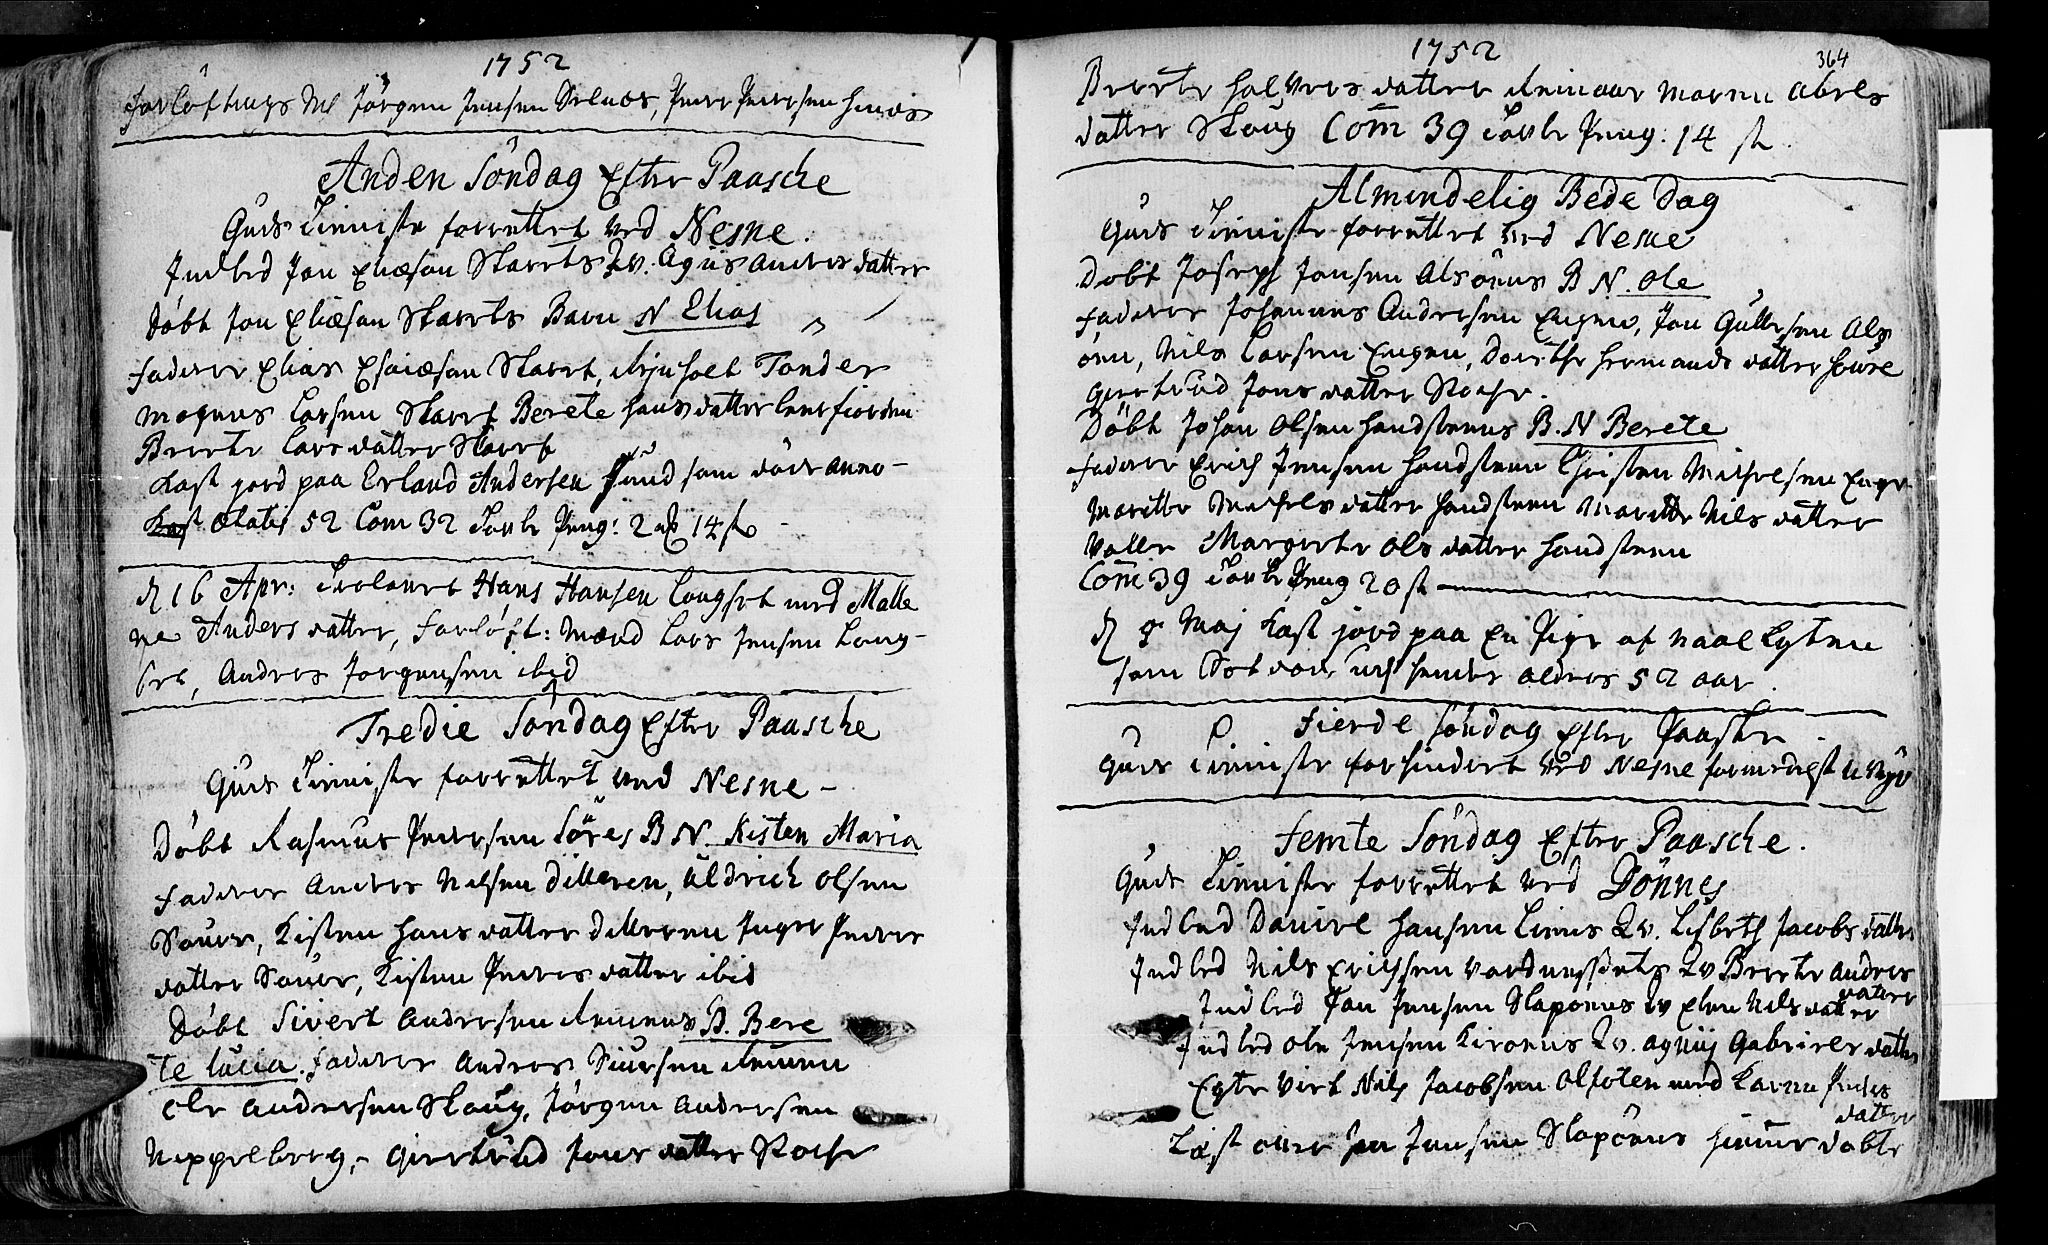 1752
Forlöftings M Jörgen Jensen Selnæs, Peder Pedersen
Anden Söndag Efter Paasche
Guds Tienniste forrettet ved Nesne.
Indled Jon Eliæsen Skarets Qv. Agnis Anders datter
Døbt Jon Eliæsen Skarets Barn N Elias
Fadere Elias Esaiæsen Skaret, Tonder
Magnus Larsen Skaret Berete Hans datter
Berete Lars datter Skaret
Kast jord paa Erland Andersen Sund som döde anno
ætatis 52 Com 32 Tavle Peng: 2 14
d 16 Apr: Trolovet Hans Hansen Langset med Malle
ne Anders datter, Forlöft: Mænd Lars Jensen Lang-
set, Andres Jörgensen ibid
Tredie Söndag Efter Paasche
Guds Tienniste forrettet ved Nesne -
Døbt Rasmus Pedersen Söres B N. Kisten Maria
Fadere Anders Nilsen Dilleren, Uldrich Olsen
Kisten Hans datter Dilleren Inger Peder
datter Kisten Peders datter ibid
Døbt Sivert Andersen B. Bere
te Lucia. Fadere Andres Siursen
Ole Andersen Skaug, Jörgen Andersen
Neppelberg, Giertrud Jons datter
1752
364
Berete Halvers datter Maren Abels
datter Skaug Com 39 Tavle Peng: 14 sk
Almindelig Bede Dag
Guds Tienniste forrettet ved Nesne
Dobt Joseph Jonsen Alsönes B N. Ole
Fadere Johannes Andersen Engen, Jon Gullesen Als
önn, Nils Larsen Engen, Dorethe Hermands datter
Giertrud Jons datter
Døbt Johan Olsen Handstenes B. N Berete
Fadere Erich Jensen Handsteen Christen Michelsen
Marette Michels datter Handsteen Marette Nils datter
Valle Margrete Ols datter Handsteen
Com 39 Tavle Peng 20 sk
d 8 Maj Kast jord paa en Pige af
som hendes alders 52 aar.
Fierde Söndag Efter Paasche
Guds Tienniste forhindret ved Nesne formedelst
Femte Söndag Efter Paasche.
Guds Tienniste forrettet ved Dönnes
Indled Daniel Hansen Qv. Lisbeth Jacobs datter
Indled Nils Erichsen Qv Berete Andres
datter
Indled Jon Jensen Slapönes Qv Elen Nils datter
Indled Ole Jensen Qv. Agnis Gabriels datter
Egte Viet Nils Jacobsen Olfoten med Karen Peders
datter
Læst over Jon Jensen Slapönes döbte